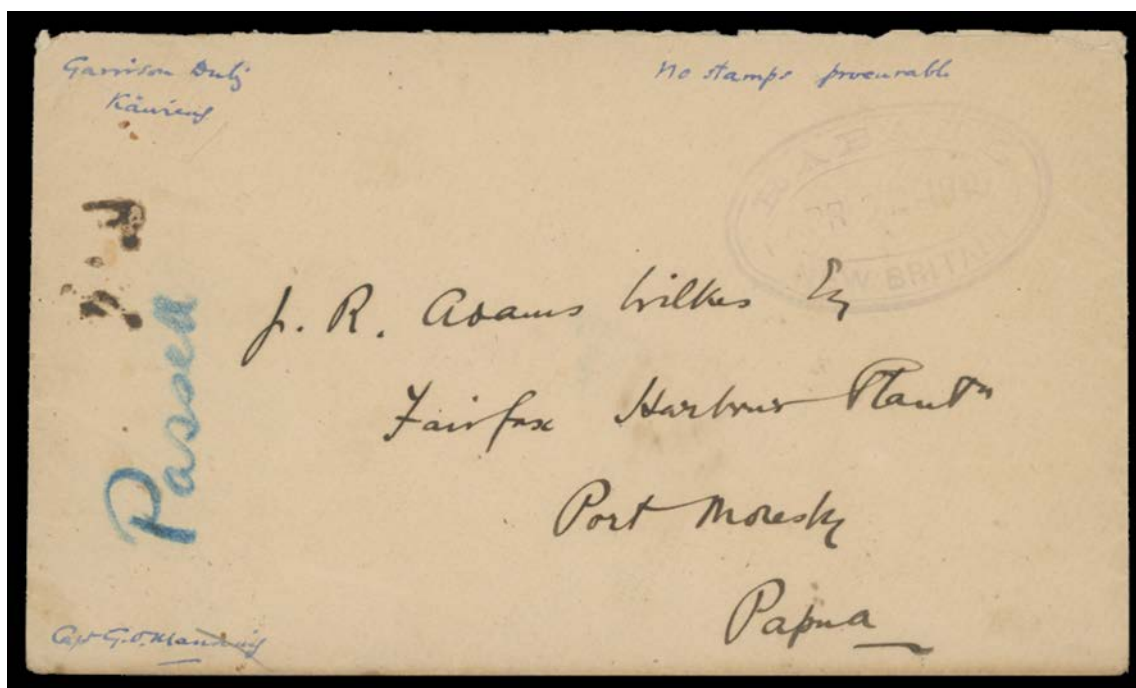 Garrison Duty
Käwieng
No stamps procurable
RABAUL
NEW BRITAIN
J. R. Adams Wilkes Esq
Fairfax Harbour Plantn
Port Moresby
Papua
Passed
Capt G.O. Manning